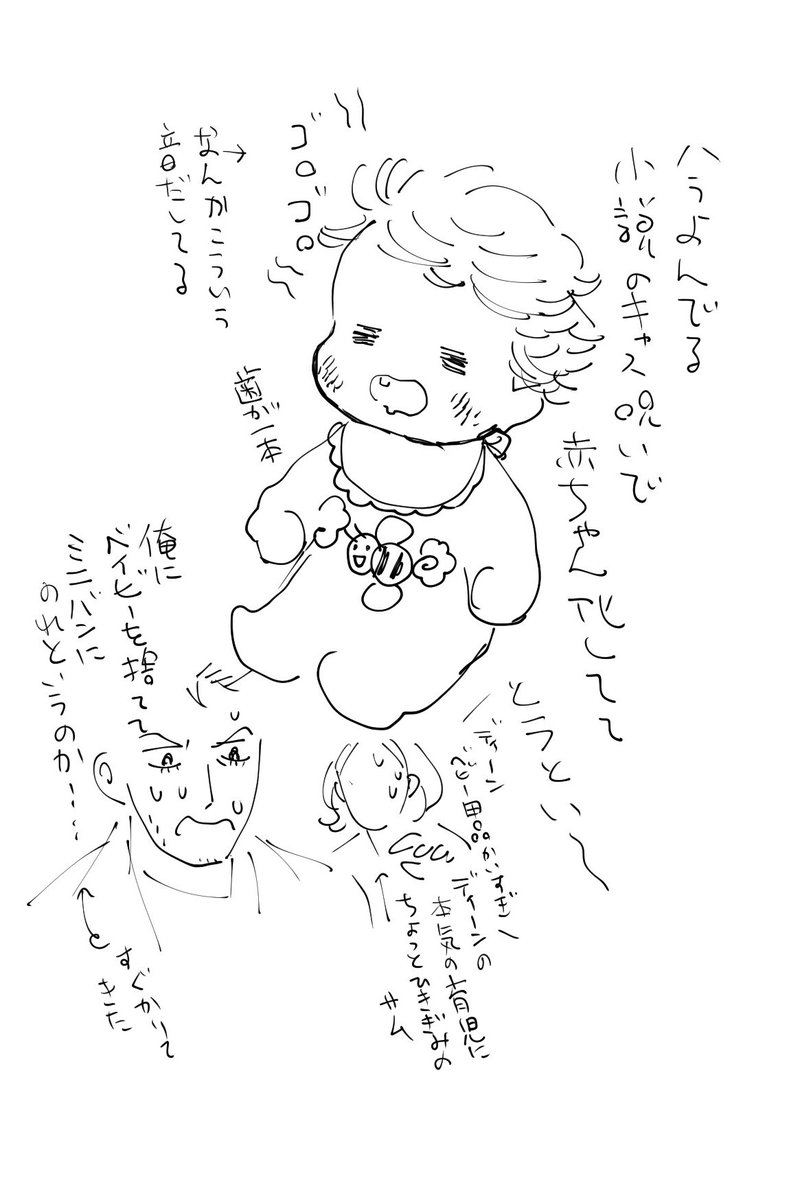 今よんでる
小説のキャス呪いで
赤ちゃん化してて
とうとい〜
ゴロゴロ
→なんかこういう
音だしてる
歯が一本
俺に
ベイビーを捨てて
ミニバンに
のれというのか・・・
すぐかりて
きた
ディーン
ベビー用品かいすぎ
ディーンの
本気の育児に
ちょっとひきぎみの
サム